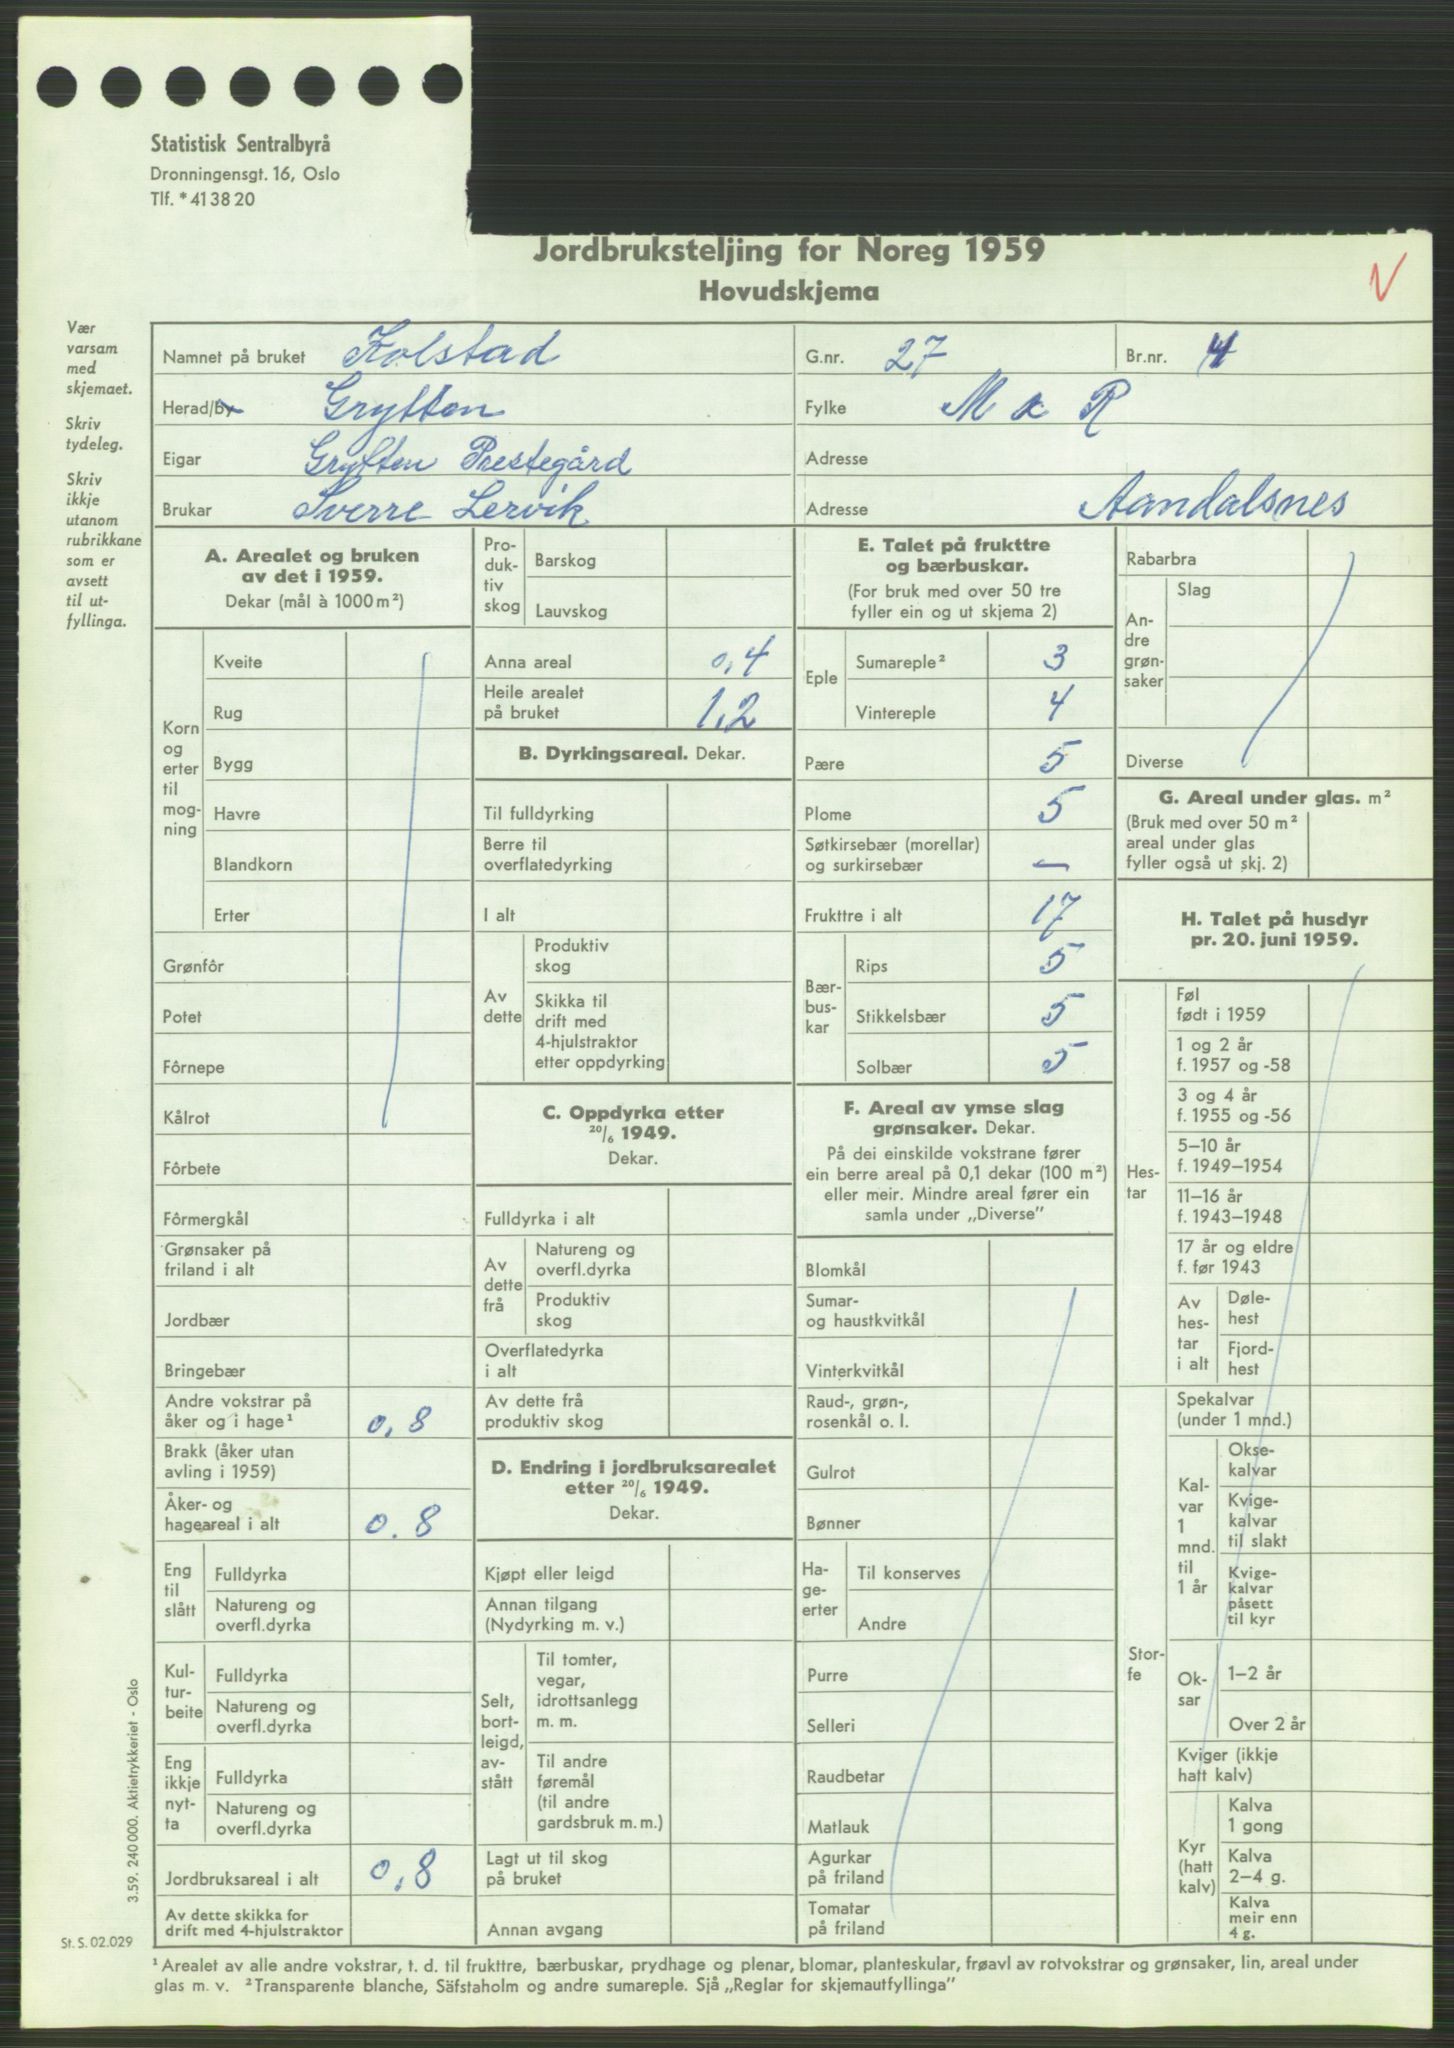 Statistisk Sentralbyrå
Dronningensgt. 16, Oslo
Tlf. * 41 38 20
Jordbruksteljing for Noreg 1959
Hovudskjema
V
Vær
varsam
med
skjemaet.
Skriv
tydeleg.
Skriv
ikkje
utanom
rubrikkane
som er
avsett
til ut-
fyllinga.
Namnet på bruket Kolstad G.nr. 27 Br.nr. 4
Herad/by Grytten Fylke M & R
Eigar Grytten Prestegård Adresse
Brukar Sverre Lervik Adresse Aandalsnes
A. Arealet og bruken
av det i 1959.
Dekar (mål à 1000 m²)
Korn
og
erter
til
mog-
ning
Kveite
Rug
Bygg
Havre
Blandkorn
Erter
Grønfôr
Potet
Fôrnepe
Kålrot
Fôrbete
Fôrmergkål
Grønsaker på
friland i alt
Jordbær
Bringebær
Andre vokstrar på
åker og i hage¹ 0,8
Brakk (åker utan
avling i 1959)
Åker- og
hageareal i alt 0.8
Eng
til
slått
Fulldyrka
Natureng og
overfl.dyrka
Kul-
tur-
beite
Fulldyrka
Natureng og
overfl.dyrka
Eng
ikkje
nyt-
ta
Fulldyrka
Natureng og
overfl.dyrka
Jordbruksareal i alt 0,8
Av dette skikka for
drift med 4-hjulstraktor
Pro-
duk-
tiv
skog
Barskog
Lauvskog
Anna areal 0,4
Heile arealet
på bruket 1,2
B. Dyrkingsareal. Dekar.
Til fulldyrking
Berre til
overflatedyrking
I alt
Av
dette
Produktiv
skog
Skikka til
drift med
4-hjulstraktor
etter oppdyrking
C. Oppdyrka etter
20/6 1949.
Dekar.
Fulldyrka i alt
Av
dette
frå
Natureng og
overfl.dyrka
Produktiv
skog
Overflatedyrka
i alt
Av dette frå
produktiv skog
D. Endring i jordbruksarealet
etter 20/6 1949.
Dekar.
Kjøpt eller leigd
Annan tilgang
(Nydyrking m. v.)
Selt,
bort-
leigd,
av-
stått
Til tomter,
vegar,
idrottsanlegg
m. m.
Til andre
føremål
(til andre
gardsbruk m. m.)
Lagt ut til skog
på bruket
Annan avgang
E. Talet på frukttre
og bærbuskar.
(For bruk med over 50 tre
fyller ein og ut skjema 2)
Eple
Sumareple² 3
Vintereple 4
Pære 5
Plome 5
Søtkirsebær (morellar)
og surkirsebær —
Frukttre i alt 17
Bær-
bus-
kar
Rips 5
Stikkelsbær 5
Solbær 5
F. Areal av ymse slag
grønsaker. Dekar.
På dei einskilde vokstrane fører
ein berre areal på 0,1 dekar (100 m²)
eller meir. Mindre areal fører ein
samla under „Diverse”
Blomkål
Sumar-
og haustkvitkål
Vinterkvitkål
Raud-, grøn-,
rosenkål o. l.
Gulrot
Bønner
Ha-
ge-
erter
Til konserves
Andre
Purre
Selleri
Raudbetar
Matlauk
Agurkar
på friland
Tomatar
på friland
Rabarbra
An-
dre
grøn-
saker
Slag
Diverse
G. Areal under glas. m²
(Bruk med over 50 m²
areal under glas
fyller også ut skj. 2)
H. Talet på husdyr
pr. 20. juni 1959.
Hes-
tar
Føl
født i 1959
1 og 2 år
f. 1957 og -58
3 og 4 år
f. 1955 og -56
5–10 år
f. 1949–1954
11–16 år
f. 1943–1948
17 år og eldre
f. før 1943
Av
hes-
tar
i alt
Døle-
hest
Fjord-
hest
Stor-
fe
Spekalvar
(under 1 mnd.)
Kal-
var
1
mnd.
til
1 år
Okse-
kalvar
Kvige-
kalvar
til slakt
Kvige-
kalvar
påsett
til kyr
Ok-
sar
1–2 år
Over 2 år
Kviger (ikkje
hatt kalv)
Kyr
(hatt
kalv)
Kalva
1 gong
Kalva
2–4 g.
Kalva
meir enn
4 g.
3.59. 240 000. Aktietrykkeriet - Oslo
St. S. 02.029
¹ Arealet av alle andre vokstrar, t. d. til frukttre, bærbuskar, prydhage og plenar, blomar, planteskular, frøavl av rotvokstrar og grønsaker, lin, areal under
glas m. v. ² Transparente blanche, Säfstaholm og andre sumareple. Sjå „Reglar for skjemautfyllinga”